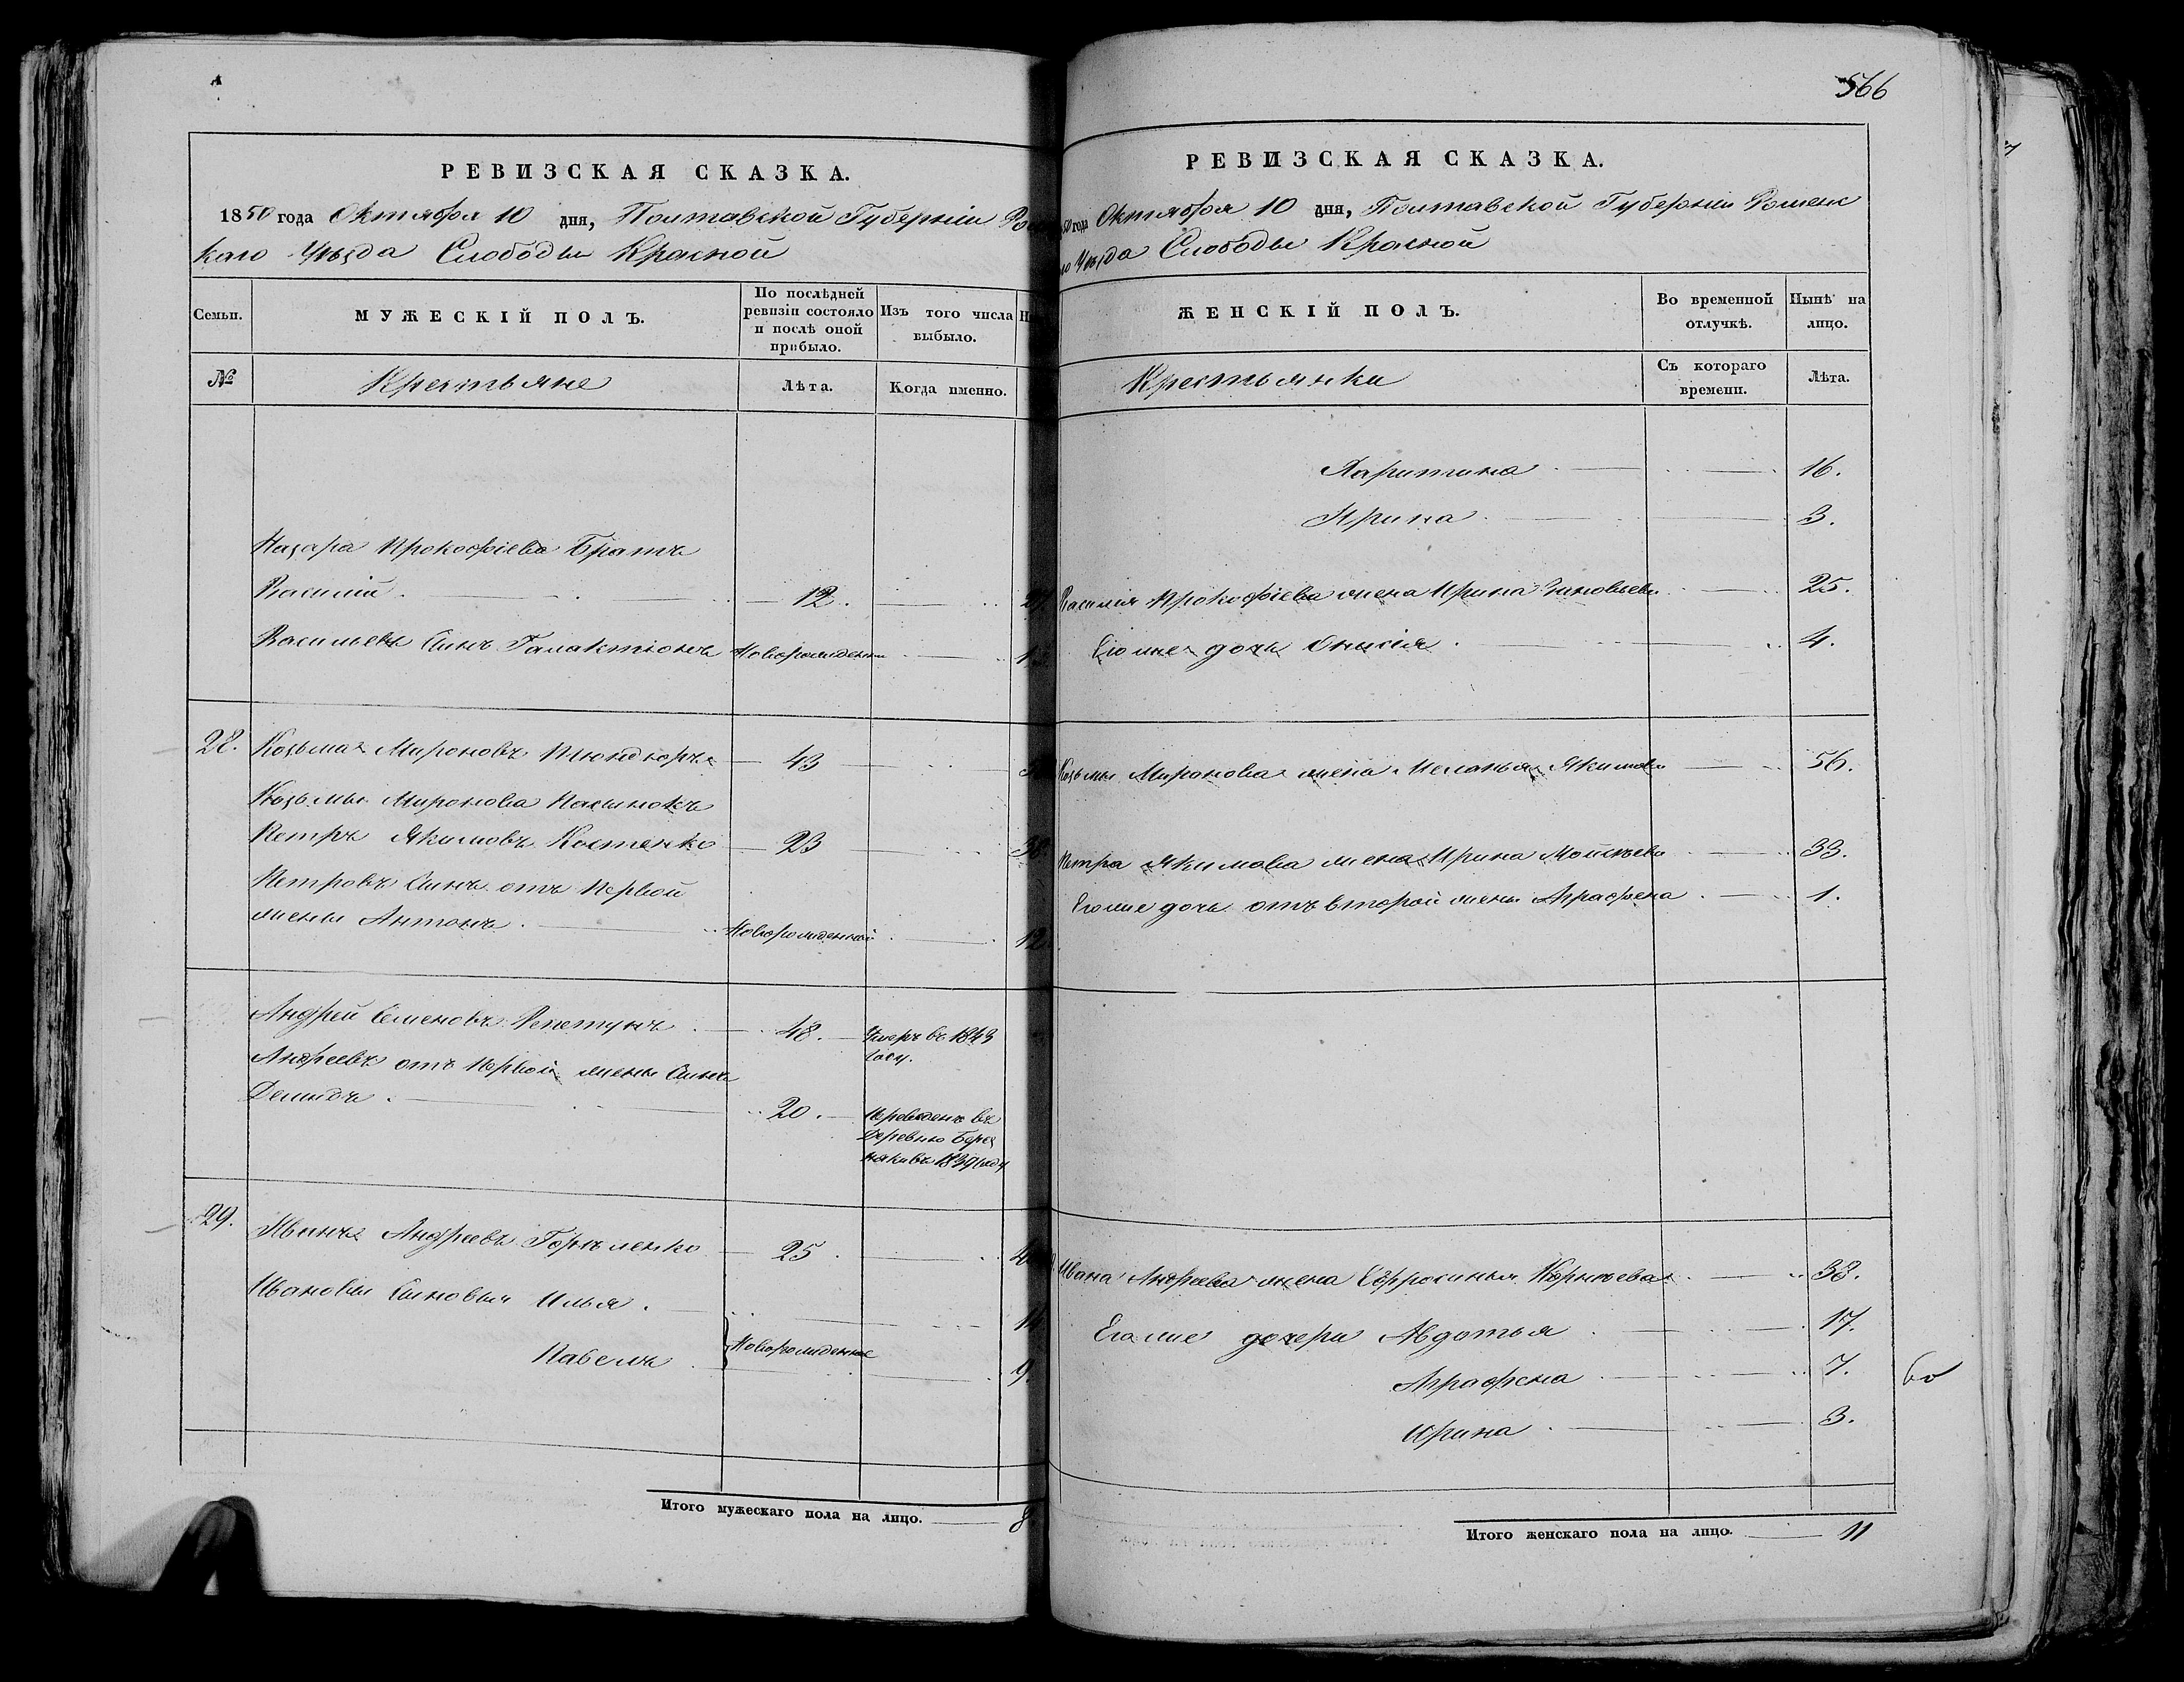 РЕВИЗСКАЯ СКАЗКА.
1850 года Октября 10 дня, Полтавской Губерніи
каго Уѣзда Слободы Красной
Семьи.
МУЖЕСКІЙ ПОЛЪ.
По послѣдней
ревизіи состояло
и послѣ оной
прибыло.
Изъ того числа
выбыло.
№
Крестьяне
Лѣта.
Когда именно.
Назара Прокофіева Братъ
Василій 12.
Васильевъ Сынъ Галактіонъ Новорожденный
28. Козьма Мироновъ 43
Козьмы Миронова Пасынокъ
Петръ Якимовъ Костенко 23
Петровъ Сынъ отъ Первой
жены Антонъ Новорожденный 12
Андрей Семеновъ Репетунъ 48. Умеръ въ 1843
году.
Андреевъ отъ Первой жены Сынъ
Демидъ 20. Переведенъ въ
Деревню Берез
няки въ 1839 году
29. Иванъ Андреевъ 25
Ивановы Сыновья Илья
Павелъ Новорожденные 9
Итого мужескаго пола на лицо. 8
566
РЕВИЗСКАЯ СКАЗКА.
50 года Октября 10 дня, Полтавской Губерніи Роменс
Уѣзда Слободы Красной
ЖЕНСКІЙ ПОЛЪ.
Во временной
отлучкѣ.
Нынѣ на
лицо.
Крестьянки
Съ котораго
времени.
Лѣта.
Харитина 16.
Ирина 3.
Василія Прокофіева жена Ирина Зиновьева 25.
Егоже дочь Онисія 4.
Козьмы Миронова жена Меланья Якимова 56.
Петра Якимова жена Ирина Моисѣева 33.
Егоже дочь отъ второй жены Аграфена 1.
Ивана Андреева жена Ефросинья Корнѣева 38.
Егоже дочери Авдотья 17.
Аграфена 7.
Ирина 3.
Итого женскаго пола на лицо. 11